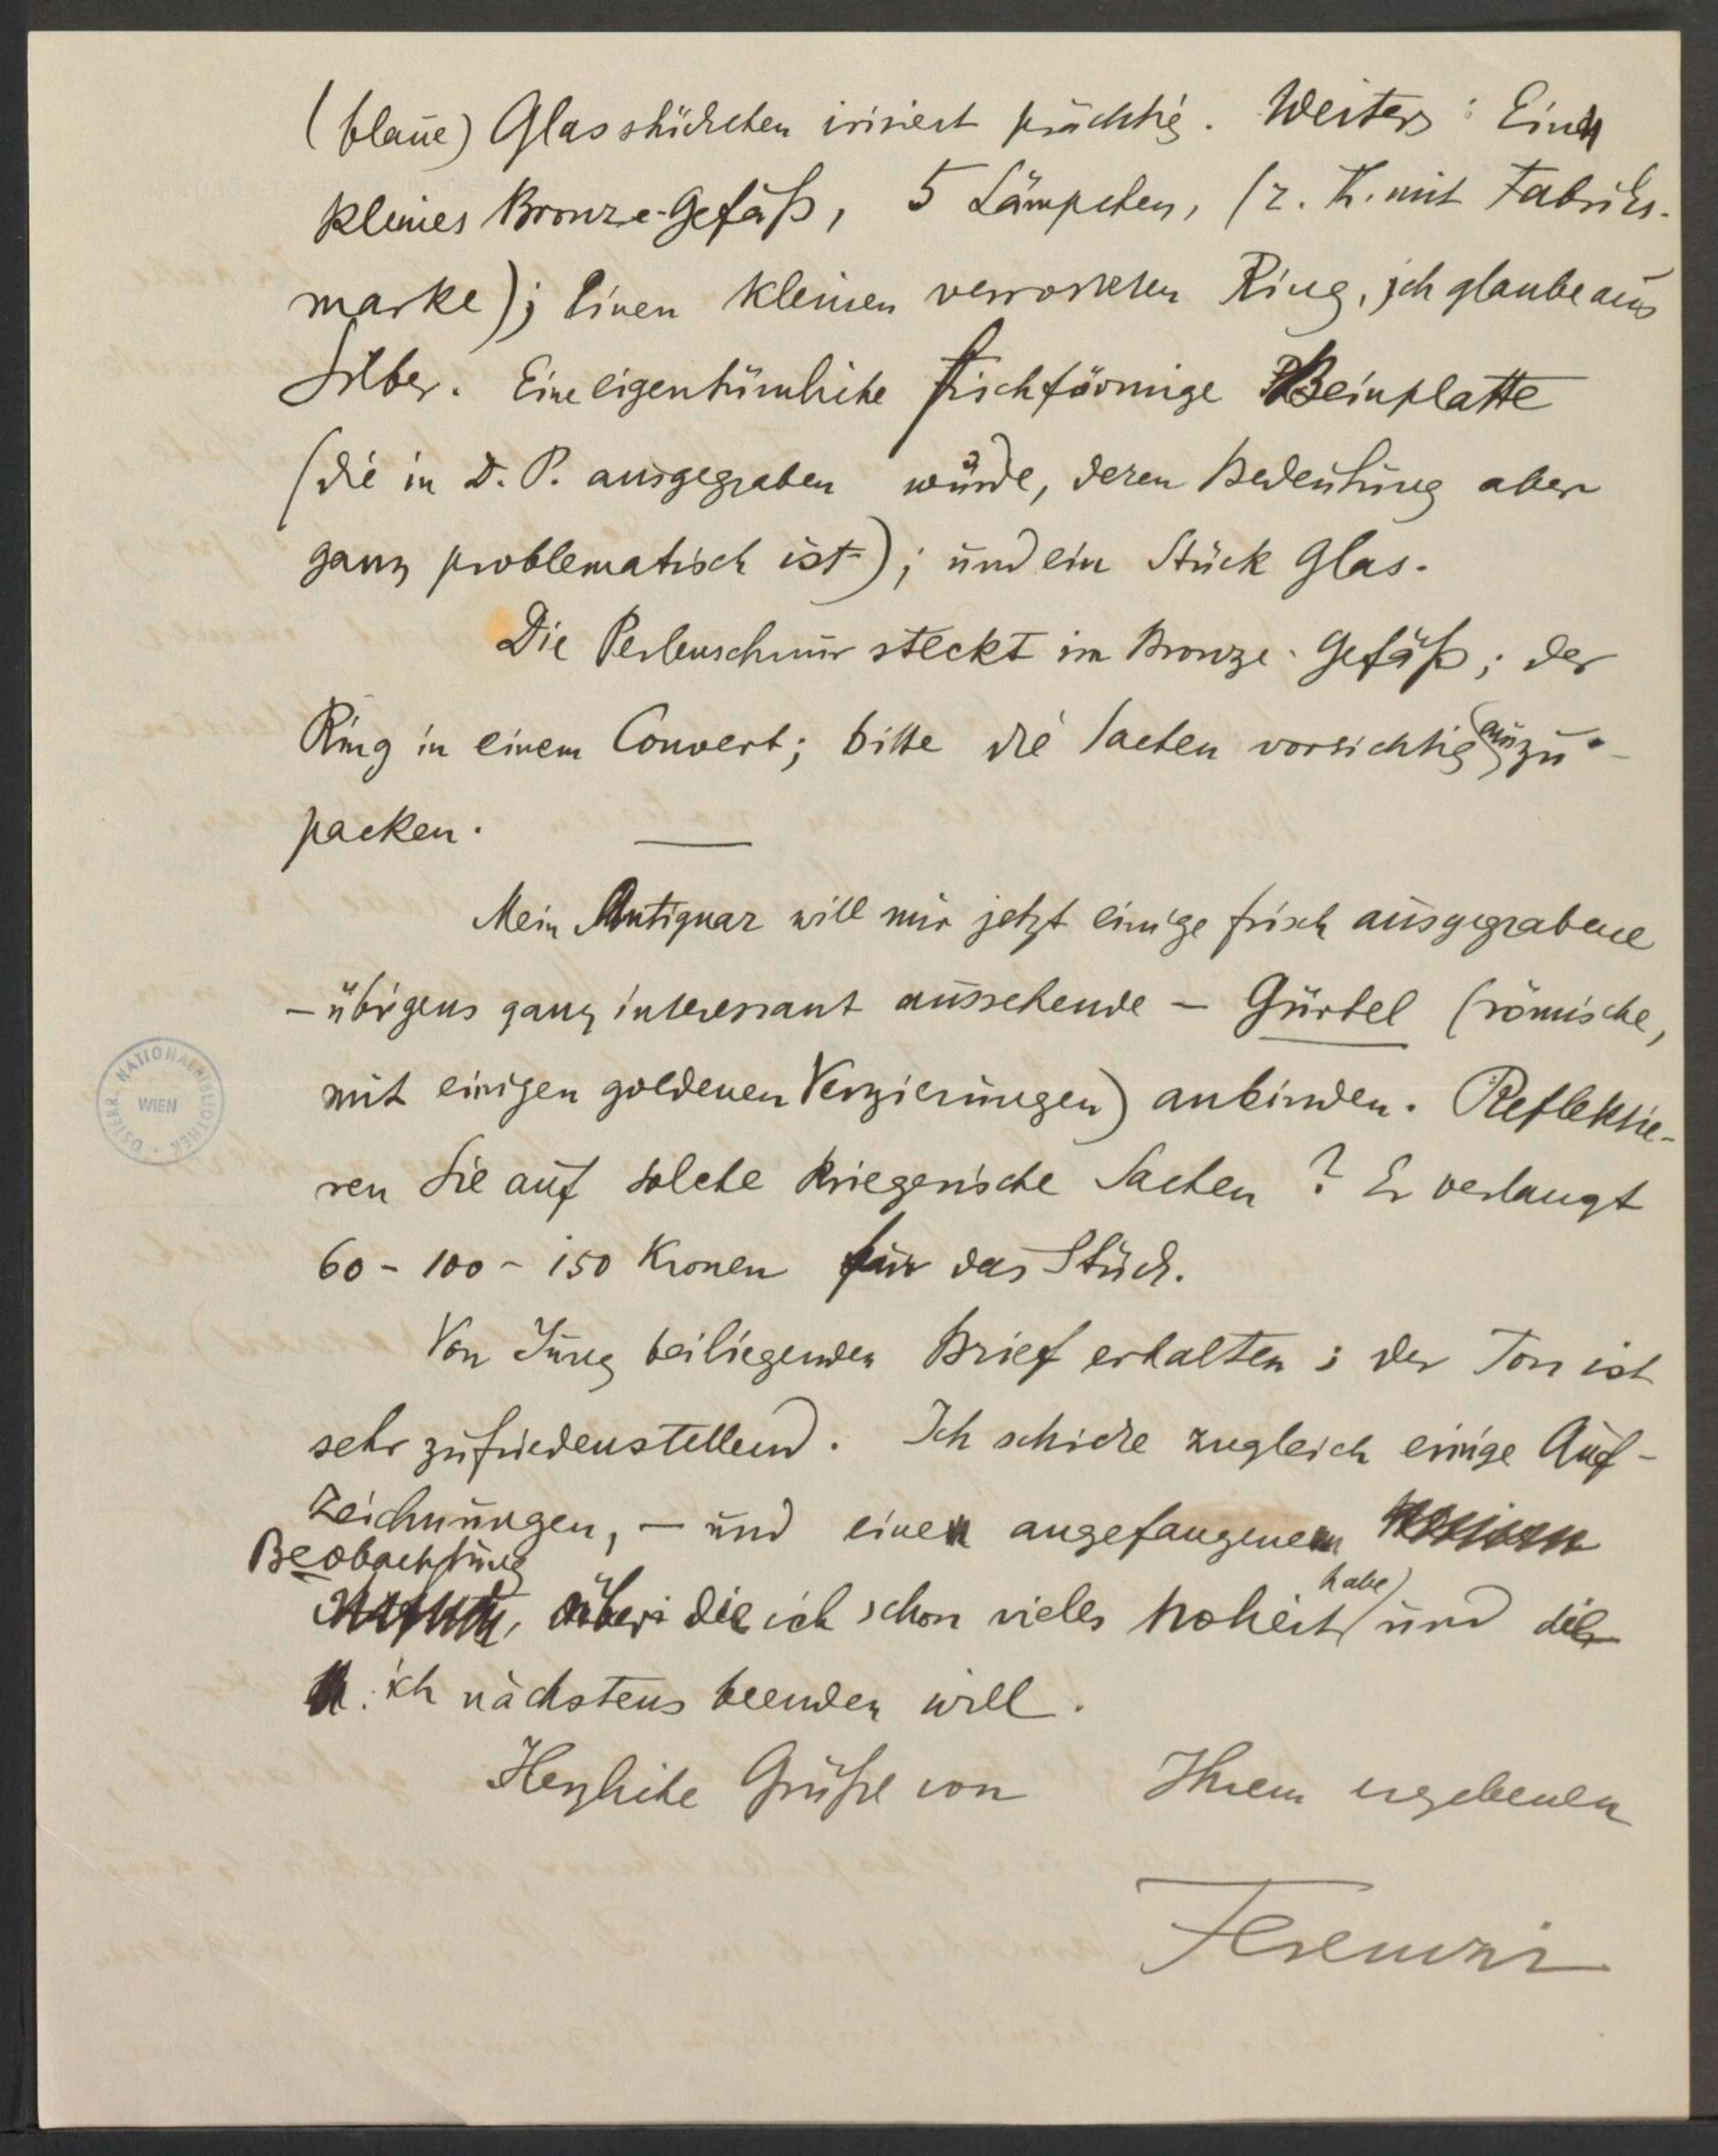 (blaue) Glasstückchen irisiert prächtig. Weiters: Ein
kleines Bronze-Gefäß, 5 Lämpchen, (z. T. mit Fabriks-
marke); Einen kleinen verrosteten Ring, ich glaube aus
Silber. Eine eigentümliche fischförmige Beinplatte
(die in D. P. ausgegraben wurde, deren Bedeutung aber
ganz problematisch ist); und ein Stück Glas.
Die Perlenschnur steckt im Bronze-Gefäß; der
Ring in einem Couvert; bitte die Sachen vorsichtig auszu-
packen.
Mein Antiquar will mir jetzt einige frisch ausgegrabene
– übrigens ganz interessant aussehende – Gürtel (römische,
mit einigen goldenen Verzierungen) anbinden. Reflektie-
ren Sie auf solche kriegerische Sachen? Er verlangt
60 - 100 - 150 Kronen für das Stück.
Von Jung beiliegenden Brief erhalten; der Ton ist
sehr zufriedenstellend. Ich schicke zugleich einige Auf-
zeichnungen, – und eine angefangene
Beobachtung
über die ich schon vieles notiert habe und die
ich nächstens beenden will.
Herzliche Grüße von Ihrem ergebenen
Ferenczi
ÖSTERR. NATIONALBIBLIOTHEK
WIEN